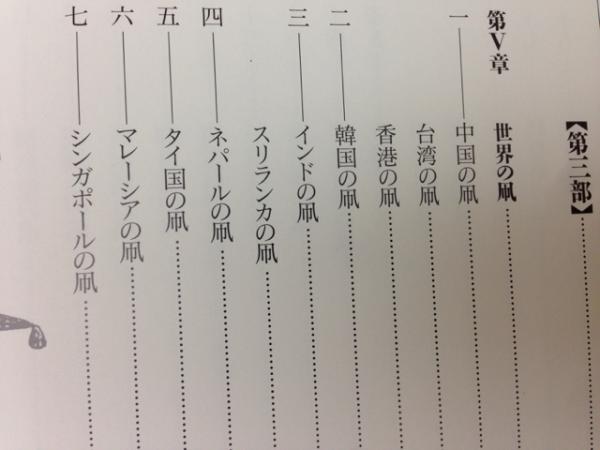 【第三部】
第Ⅴ章 世界の凧
一 中国の凧
台湾の凧
香港の凧
二 韓国の凧
三 インドの凧
スリランカの凧
四 ネパールの凧
五 タイ国の凧
六 マレーシアの凧
七 シンガポールの凧